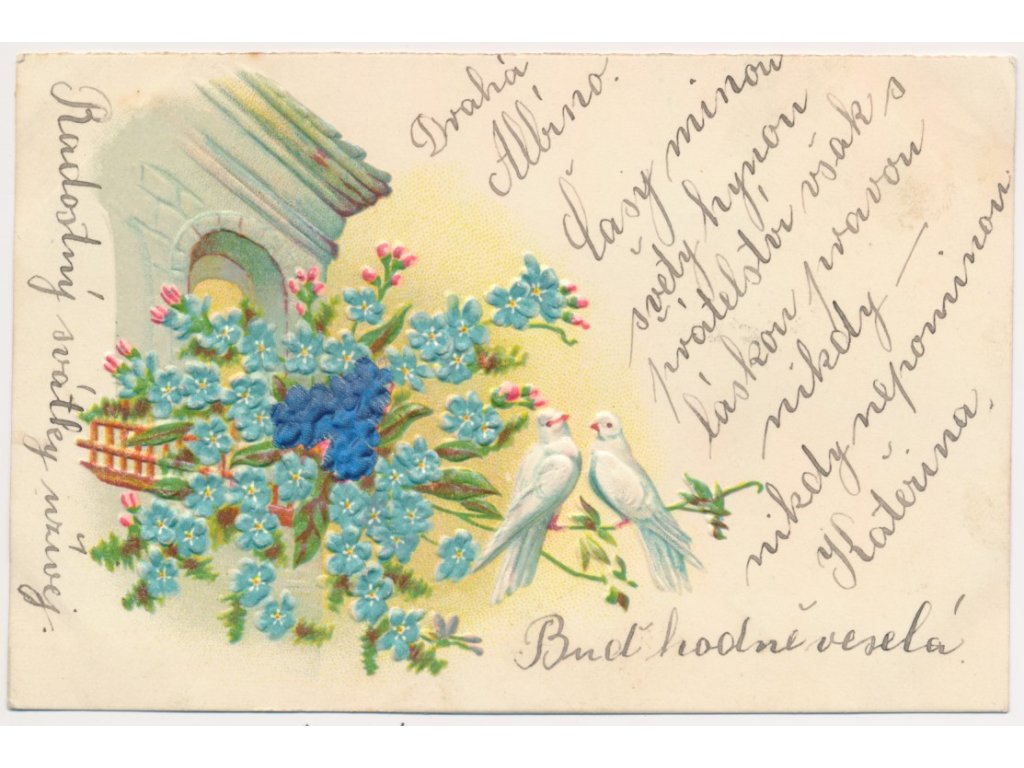 Drahá
Albíno.
Časy minou
světy hynou
přátelství však s
láskou pravou
nikdy —
nikdy nepominou
Kateřina.
Buď hodně veselá.
Radostný svátky užívej.